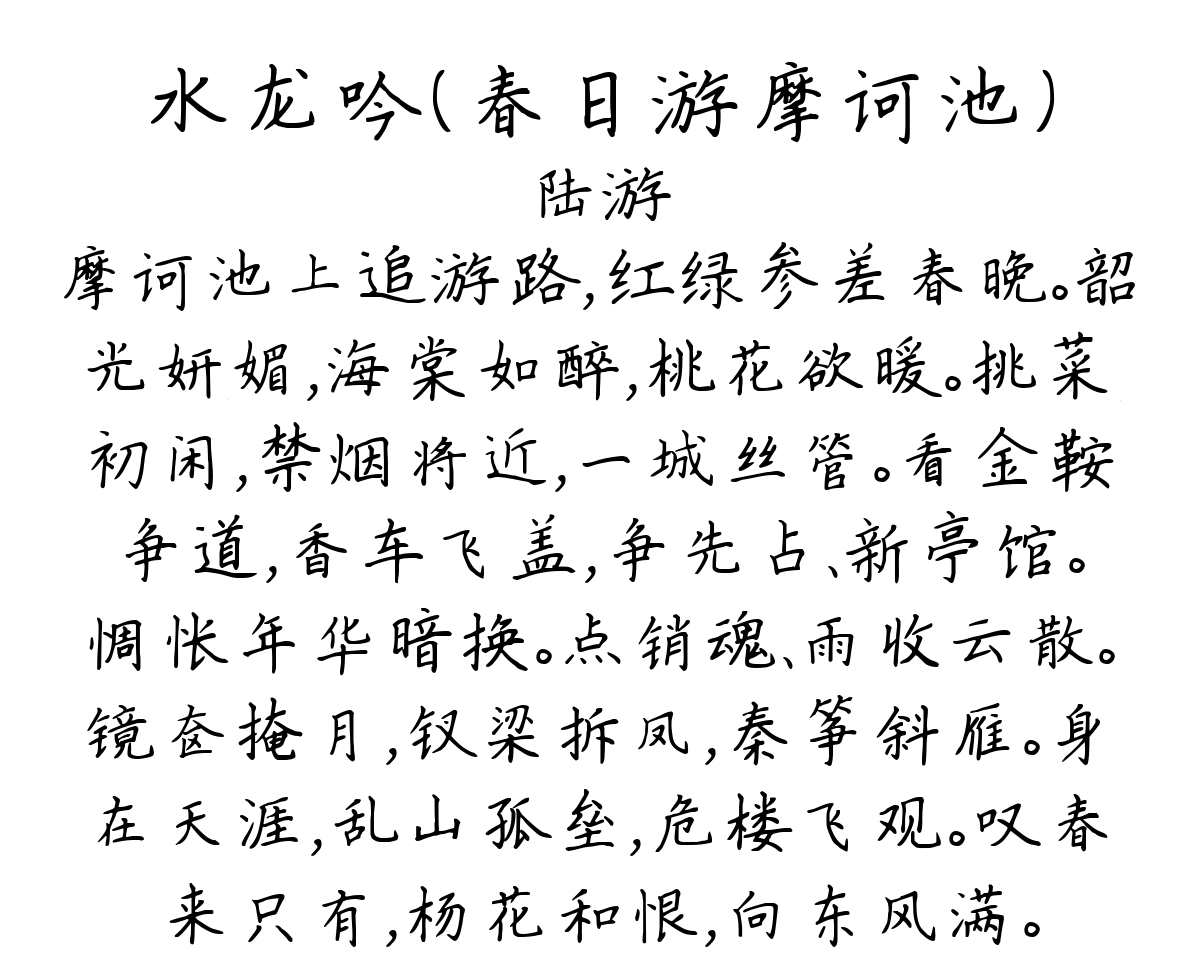 水龙吟(春日游摩诃池)
陆游
摩诃池上追游路,红绿参差春晚。韶
光妍媚,海棠如醉,桃花欲暖。挑菜
初闲,禁烟将近,一城丝管。看金鞍
争道,香车飞盖,争先占、新亭馆。
惆怅年华暗换。点销魂、雨收云散。
镜奁掩月,钗梁拆凤,秦筝斜雁。身
在天涯,乱山孤垒,危楼飞观。叹春
来只有,杨花和恨,向东风满。